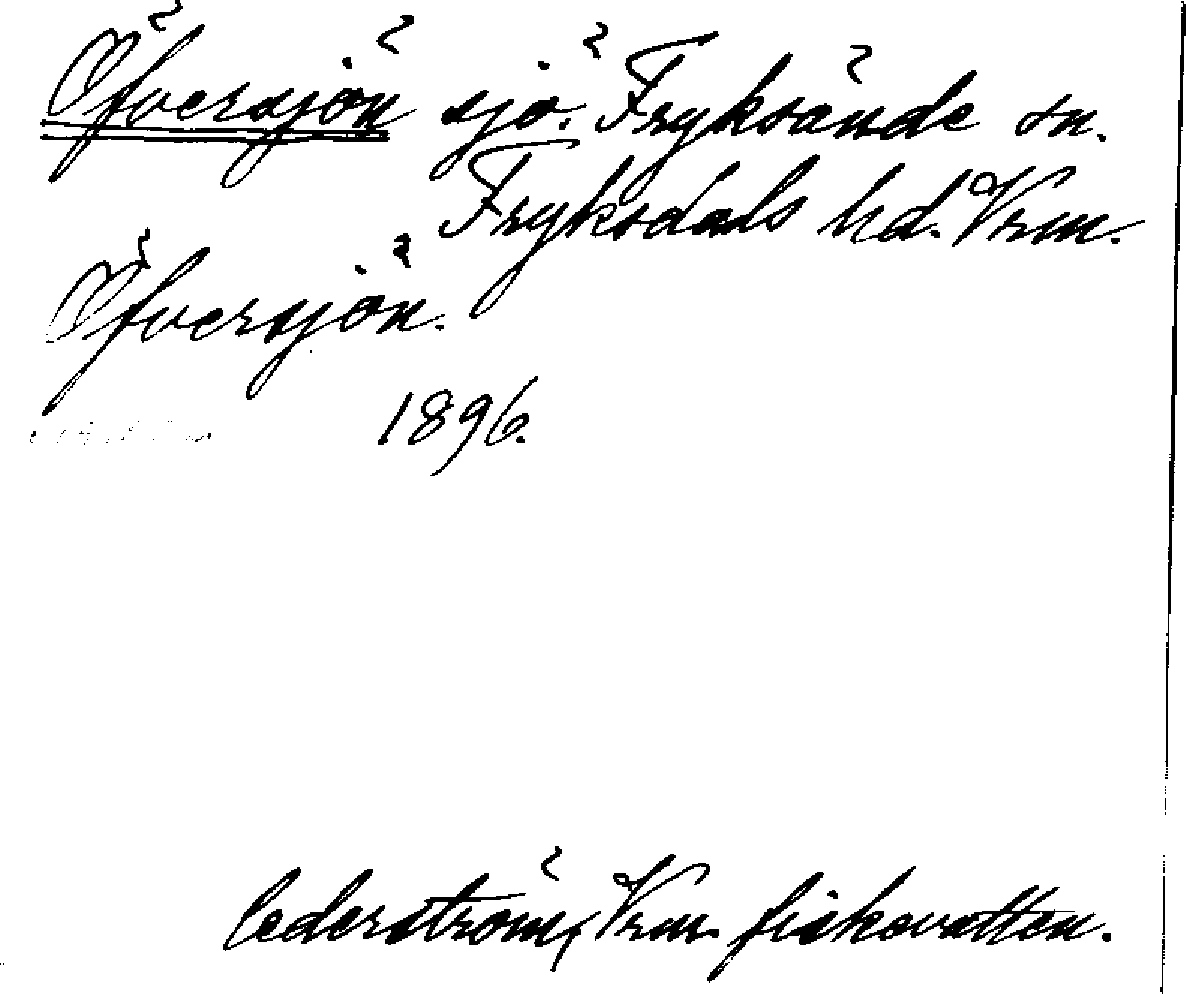 Öfversjön sjö. Fryksände sn.
Fryksdals hd. Vrm.
Öfversjön.
1896.
Cederström, Vrm. fiskevatten.